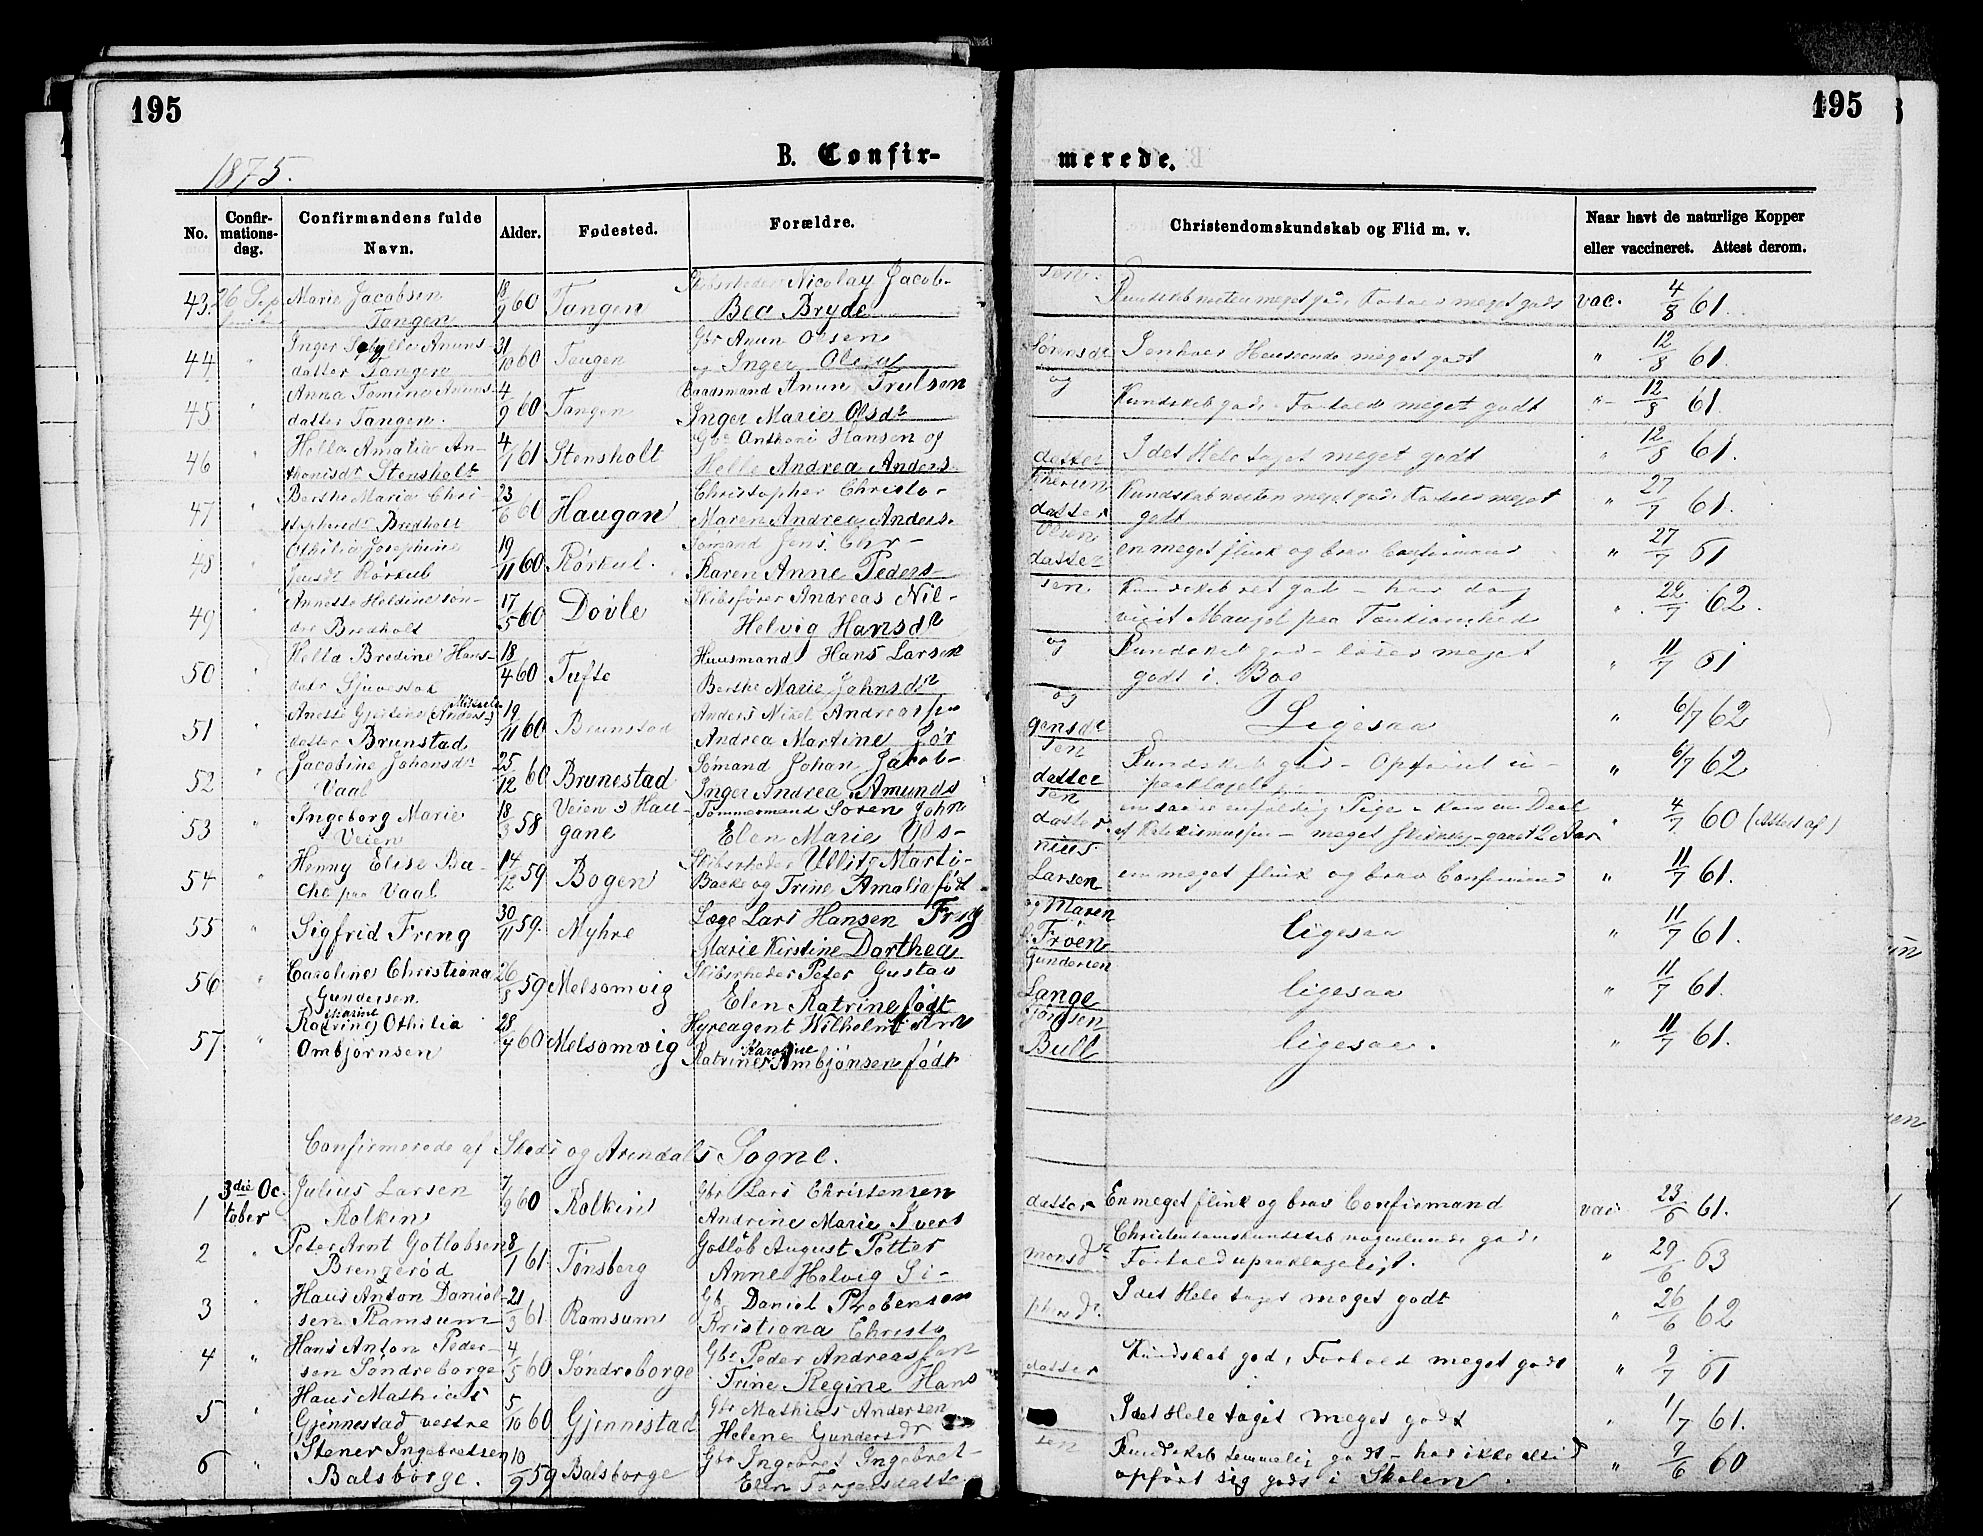 195
195
1875.
B. Confir-
merede.
No.
Confir-
mations-
dag.
Confirmandens fulde
Navn.
Alder.
Fødested.
Forældre.
Christendomskundskab og Flid m. v.
Naar havt de naturlige Kopper
eller vaccineret. Attest derom.
43. 26 Sep Marie Jacobsen 18/9 60 Tangen Skibsrheder Nicolay Jacob- sen. Kundskab næsten meget god, Forhold meget godt vac. 4/8 61.
Tangen Bea Bryde
44 " Inger Anuns 31/10 60 Tangen Gbr Anun Olsen
datter Tangen og Inger Olea Sørensdr meget godt " 12/8 61.
45 " Anna Tomine Anuns- 4/9 60 Tangen Baadsmand Anun Trulsen og Kundskab god. Forhold meget godt " 12/8 61
datter Tangen. Inger Marie Olsdr
46 " Helle Amalia An- 4/7 61 Stensholt Gbr Anthoni Hansen og
thonisdr Stensholt Helle Andrea Anders datter I det Hele taget meget godt " 12/8 61.
47 " Berthe Maria Chri- 23/6 61 Haugan Christopher Christo- Kundskab næsten meget god, Forhold meget " 27/7 61.
Bredholt Maren Andrea Anders. datter godt
48 " Othilia Josephine 19/11 60 Rørkul. Sømand Jens Chr- Olsen en meget flink og brav Confirmand " 27/7 61
Jensdr Rørkul Karen Anne Peders- datter
49 " Annette Heldine 17/5 60 Døvle Skibsfører Andreas Nil- sen Kundskab ret god - har dog " 22/7 62.
Bredholt Helvig Hansdr viist Mangel paa
50 " Hella Bredine Hans- 18/4 60 Tufte Huusmand Hans Larsen og Kundskab god - læser meget " 11/7 61
datr Berthe Marie Johnsdr godt i Bog
51 " Anette Anders- 19/11 60 Brunstad Anders Nikol Andreassen og Ligesaa " 6/7 62
datter Brunstad Andrea Martine Jør gensdr
52 " Jacobine Johansdr 25/12 60 Brunestad Sømand Johan Jacob- sen Kundskab god - Opførsel u- " 6/7 62
Vaal Inger Andrea Amunds datter paaklagelig
53 Ingeborg Marie 18/3 58 Veien i Hau- Tømmermand Søren John sen en saare enfoldig Pige - kan en Deel " 4/7 60 (Attest af)
Veien gane Elen Marie Ols- datter af Katekismussen - meget
54 " Henny Elise Ba- 14/12 59 Bogen Skibsrheder Ullits Marti- nius
che paa Vaal Backe og Trine Amalia født Larsen en meget flink og brav Confirmand " 11/7 61.
55 " Sigfrid Freng 30/11 59. Myhre Læge Lars Hansen Freng og Maren ligesaa " 11/7 61.
Marie Kirstine Dorthea f. Frøen
56 " Caroline Christiana 26/8 59 Melsomvig Skibsrheder Peter Gustav Gundersen ligesaa " 11/7 61.
Gundersen Elen Katrine født Lange
57 " Katrine Othilia 28/7 60 Melsomvig Hyreagent Wilhelm Am bjørnsen ligesaa. " 11/7 61.
Ombjørnsen Katrine Karoline Ambjørnsen født Bull
Confirmerede af Skeds og Arendals Sogne.
1 3die Oc. Julius Larsen 7/9 60 Rolkin Gbr Lars Christensen
tober Rolkin Andrine Marie Ivers datter En meget flink og brav Confirmand vac 23/6 61.
2 " Peter Arnt Gotlobsen 8/1 61. Tønsberg Gotlob August Petter Christendomskundskab nogenlunde god, " 29/6 63
Brengerød Anne Helvig Si- monsdr Forhold upaaklageligt.
3 " Hans Anton Daniel- 21/3 61 Ramsum Gb. Daniel Probensen I det Hele taget meget godt " 26/6 62
sen Ramsum Kristiana Christo phersdr.
4 " Hans Anton Peder- 4/5 60 Søndreborge Gbr Peder Andreassen Kundskab god, Forhold meget godt " 9/7 61
sen Søndreborge Trine Regine Hans datter
5 " Hans Mathias 5/10 60 Gjennistad Gbr Mathias Andersen I det Hele taget meget godt " 1/7 61.
Gjennestad vestre Helene Gundersdr
6 " Stener Ingebretsen 10/9 59 Balsborge Gbr Ingebret Ingebret- sen Kundskab temmelig godt - har ikke altid " 9/6 60
Balsborge. Elen Torgersdatter opført sig godt i Skolen.